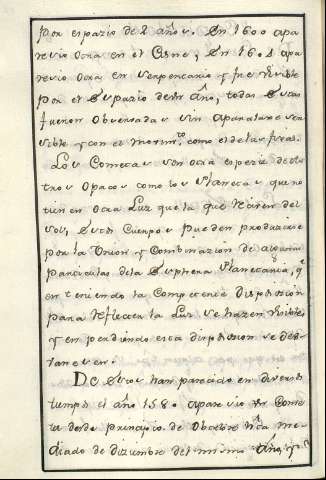 por espazio de 2 años. En 1600 apa
recio otra en el Cisne, En 1604 apa
recio otra en Serpentario y fue visible
por el Espazio de un Año, todas Estas
fueron observadas sin
y con el movim.to como el de las fixas.
Los Cometas son otra especie de As
tros opacos como los Planetas, que no
tienen otra Luz que la que reciven del
sol, Estos Cuerpos pueden produzirse
por la Union y Combinazion de algunas
particulas de la Esphera Planetaria, q.e
en teniendo la Competente disposizion
para reflectar la Luz se hazen visibles
y en perdiendo esta disposizion se des
vanesen.
De Estos han parecido en diversos
tiempos el año 1580 aparecio Un Come
ta desde principio de Octubre h.ta me
diado de dizembre del mismo Año, y